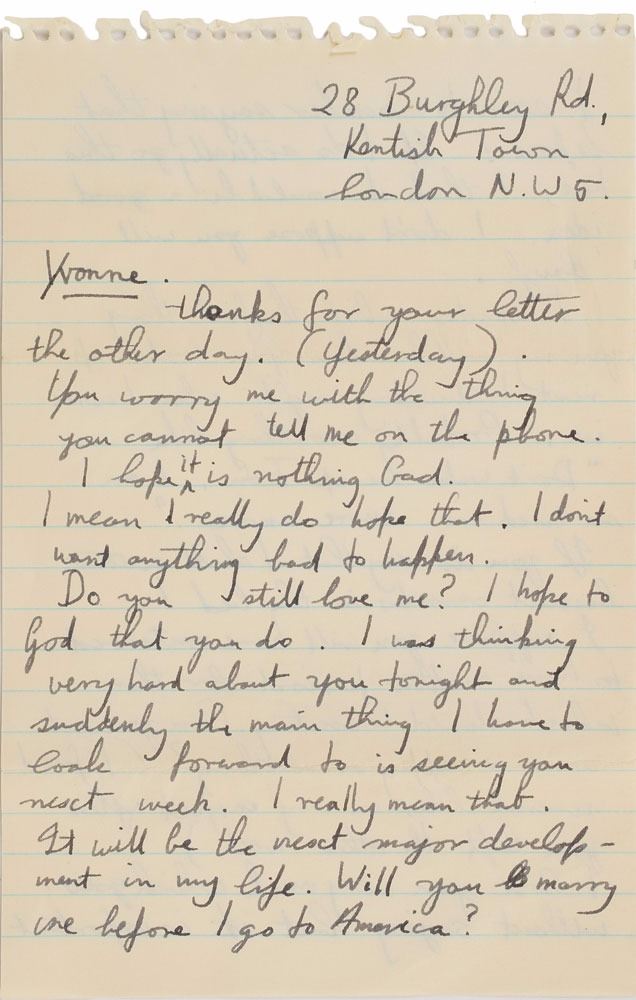 28 Burghley Rd.,
Kentish Town
London N.W 5.
Yvonne.
thanks for your letter
the other day. (Yesterday).
You worry me with the thing
you cannot tell me on the phone.
I hope it is nothing bad.
I mean I really do hope that. I dont
want anything bad to happen.
Do you still love me? I hope to
God that you do. I was thinking
very hard about you tonight and
suddenly the main thing I have to
look forward to is seeing you
next week. I really mean that.
It will be the next major develop-
ment in my life. Will you marry
me before I go to America?